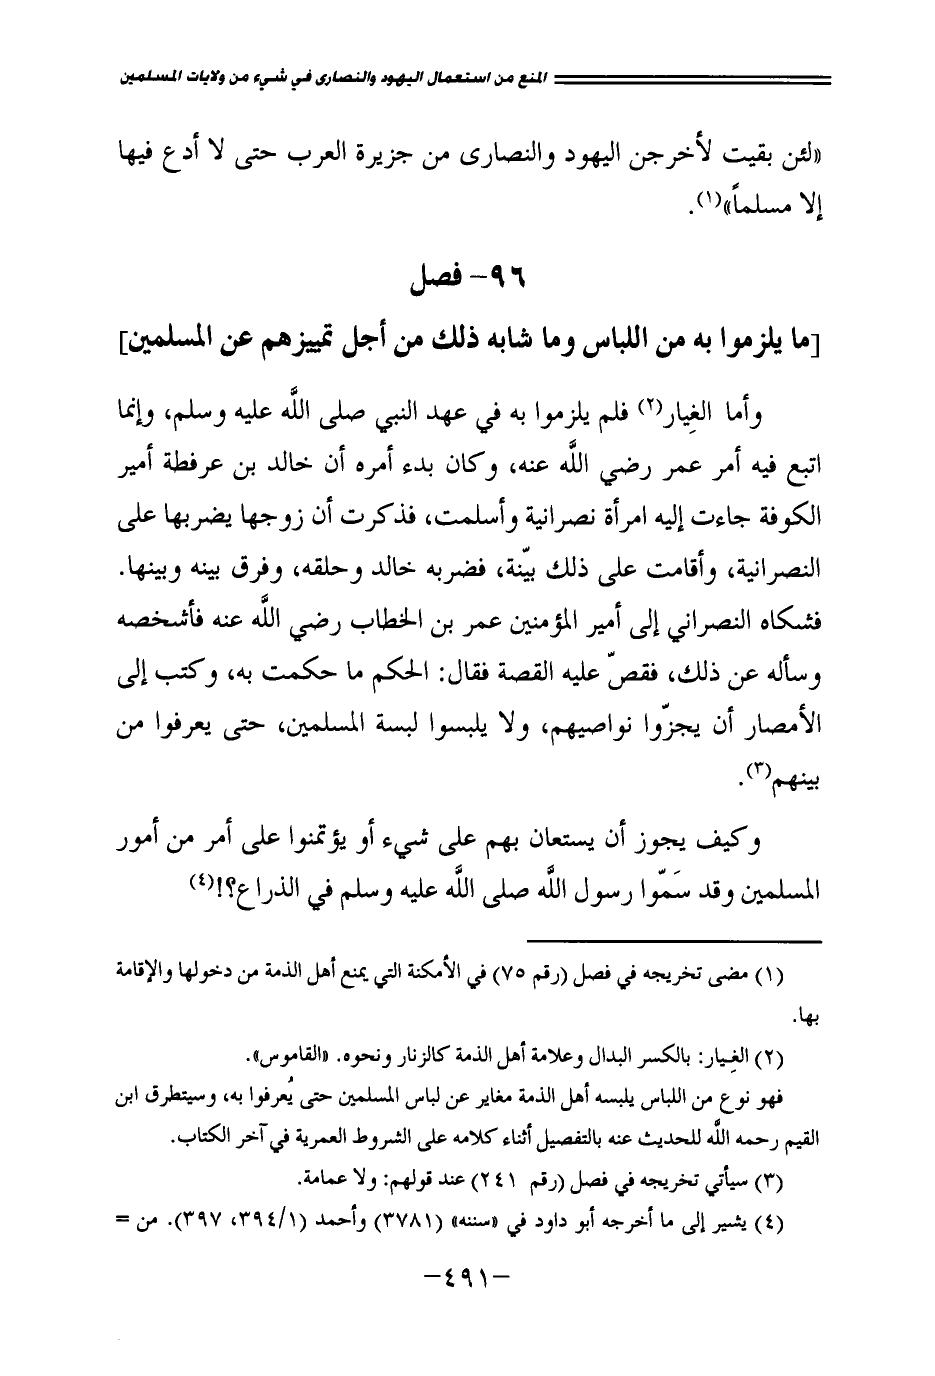 المنع من استعمال اليهود والنصارى في شيء من ولايات المسلمين
«لئن بقيت لأخرجن اليهود والنصارى من جزيرة العرب حتى لا أدع فيها
إلا مسلماً»(١).
٩٦- فصل
[ما يلزموا به من اللباس وما شابه ذلك من أجل تمييزهم عن المسلمين]
وأما الغِيار(٢) فلم يلزموا به في عهد النبي صلى اللَّه عليه وسلم، وإنما
اتبع فيه أمر عمر رضي اللَّه عنه، وكان بدء أمره أن خالد بن عرفطة أمير
الكوفة جاءت إليه امرأة نصرانية وأسلمت، فذكرت أن زوجها يضربها على
النصرانية، وأقامت على ذلك بيّنة، فضربه خالد وحلقه، وفرق بينه وبينها.
فشكاه النصراني إلى أمير المؤمنين عمر بن الخطاب رضي اللَّه عنه فأشخصه
وسأله عن ذلك، فقصّ عليه القصة فقال: الحكم ما حكمت به، وكتب إلى
الأمصار أن يجزّوا نواصيهم، ولا يلبسوا لبسة المسلمين، حتى يعرفوا من
بينهم(٣).
وكيف يجوز أن يستعان بهم على شيء أو يؤتمنوا على أمر من أمور
المسلمين وقد سَمّوا رسول اللَّه صلى اللَّه عليه وسلم في الذراع؟!(٤)
(١) مضى تخريجه في فصل (رقم ٧٥) في الأمكنة التي يمنع أهل الذمة من دخولها والإقامة
بها.
(٢) الغِيار: بالكسر البدال وعلامة أهل الذمة كالزنار ونحوه. «القاموس».
فهو نوع من اللباس يلبسه أهل الذمة مغاير عن لباس المسلمين حتى يُعرفوا به، وسيتطرق ابن
القيم رحمه اللَّه للحديث عنه بالتفصيل أثناء كلامه على الشروط العمرية في آخر الكتاب.
(٣) سيأتي تخريجه في فصل (رقم ٢٤١) عند قولهم: ولا عمامة.
(٤) يشير إلى ما أخرجه أبو داود في «سننه» (٣٧٨١) وأحمد (١/ ٣٩٤، ٣٩٧). من =
-٤٩١-